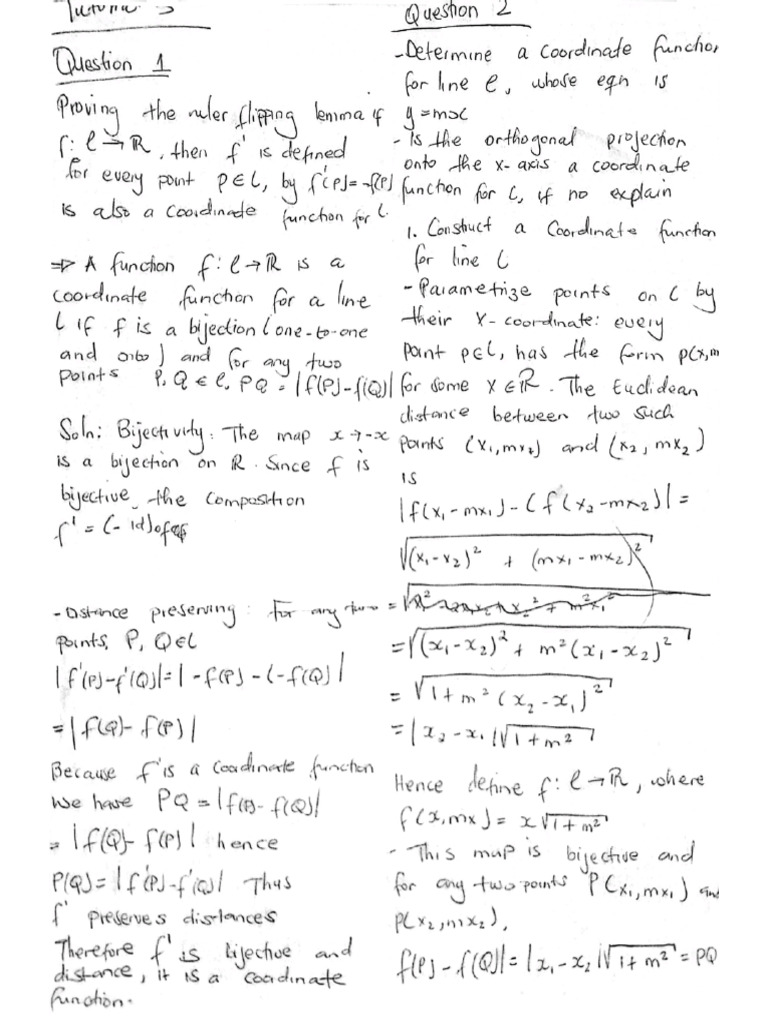 Tutorial 3
Question 1
Proving the ruler flipping lemma if
f: l→R, then f' is defined
for every point p∈l, by f'(P)=-f(P)
is also a coordinate function for l.
⇒ A function f: l→R is a
coordinate function for a line
l if f is a bijection (one-to-one
and onto) and for any two
points P, Q ∈ l, PQ = |f(P)-f(Q)|
Soln: Bijectivity: The map x→-x
is a bijection on R. Since f is
bijective, the composition
f' = (-id)∘f
- Distance preserving: For any two
points, P, Q∈l
|f'(P)-f'(Q)|=|-f(P)-(-f(Q)|
=|f(Q)-f(P)|
Because f' is a coordinate function
we have PQ=|f(P)-f(Q)|
=|f(Q)-f(P)| hence
P(Q)=|f'(P)-f'(Q)| Thus
f' preserves distances
Therefore f' is bijective and
distance, it is a coordinate
function.
Question 2
-Determine a coordinate function
for line l, whose eqn is
y=mx
- Is the orthogonal projection
onto the x-axis a coordinate
function for l, if no explain
1. Construct a coordinate function
for line l
- Parametrize points on l by
their x-coordinate: every
point p∈l, has the form p(x,m
for some x∈R. The Euclidean
distance between two such
points (x₁,mx₂) and (x₂, mx₂)
is
|f(x₁-mx₁)-(f(x₂-mx₂)|=
√(x₁-x₂)² + (mx₁-mx₂)²
=√(x₁-x₂)² + m²(x₁-x₂)²
= √1+m² (x₂-x₁)²
=|x₂-x₁|√1+m²
Hence define f: l→R, where
f(x,mx)= x√1+m²
- This map is bijective and
for any two points P(x₁,mx₁) and
P(x₂,mx₂),
f(P)-f(Q)|=|x₁-x₂|√1+m² = PQ